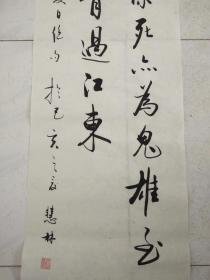 死亦為鬼雄至
肯過江東
日絶句 於己亥之 慧林